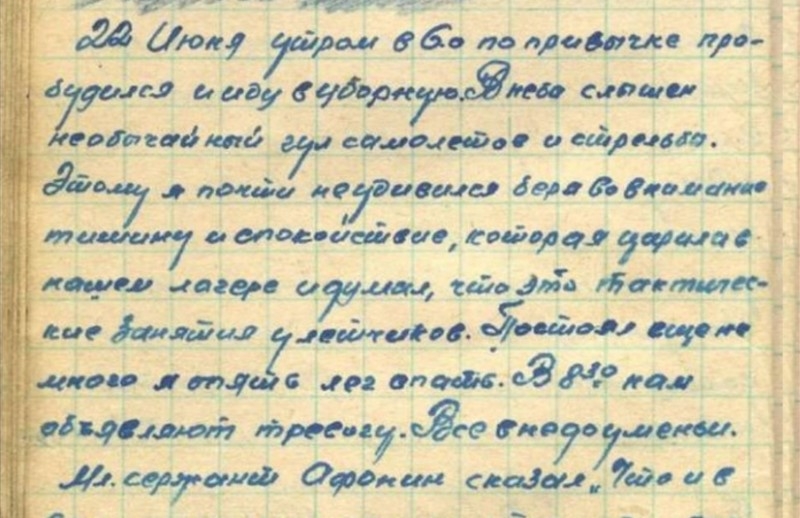 22 Июня утром в 6.0 по привычке про-
будился и иду в уборную. В неба слышен
необычайный гул самолетов и стрельба.
Этому я почти неудивился беря во внимание
тишину и спокойствие, которая царила в
нашем лагере и думал, что это тактичес-
кие занятия у летчиков. Постоял еще не
много и опять лег спать. В 8³⁰ нам
объявляют тревогу. Все в недоуменьи.
Мл. сержант Афонин сказал „Что и в